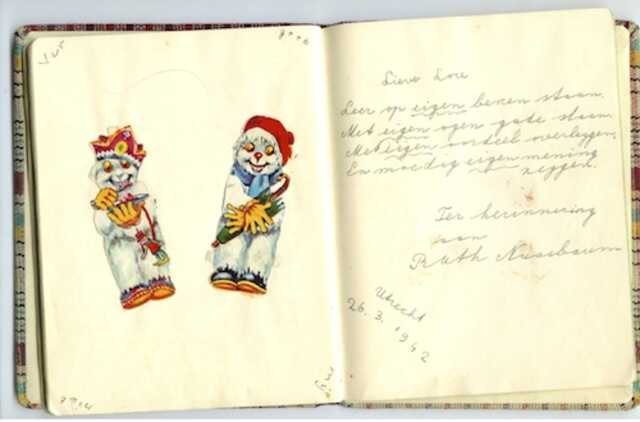 Lieve Lore
Leer op eigen benen staan.
Met eigen ogen gade slaan.
Met eigen oordeel overleggen,
En moedig eigen mening
zeggen.
Ter herinnering
aan
Ruth Nussbaum
Utrecht
26.3.1942